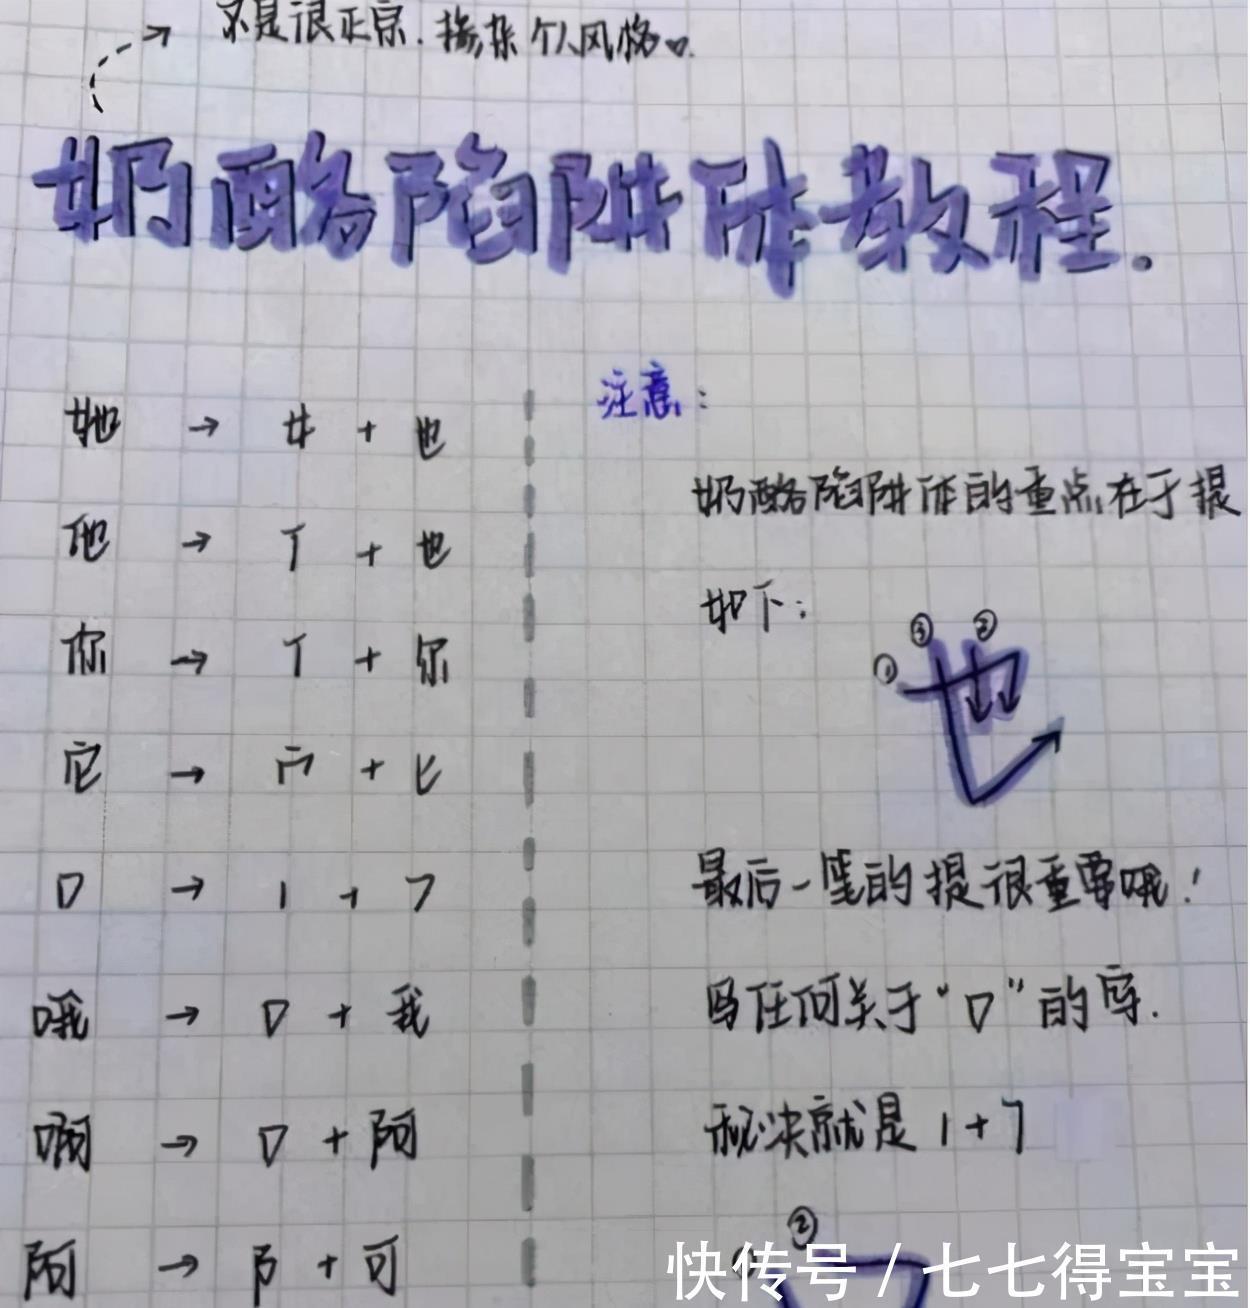 不是很正宗.掺杂个人风格。
奶酪陷阱体教程.
她 → 女 + 也
他 → 亻 + 也
你 → 亻 + 尔
它 → 宀 + 匕
口 → 1 + 7
哦 → 口 + 我
啊 → 口 + 阿
阿 → 阝 + 可
注意:
奶酪陷阱体的重点在于提
如下:
① ③ ②
也
最后一笔的提很重要哦!
写任何关于“口”的字.
秘决就是 1+7
②
快传号 / 七七得宝宝